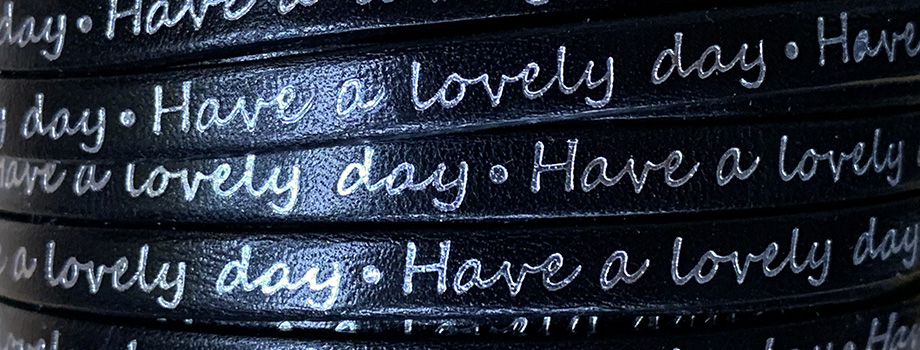 day • Have a lovely
day • Have a lovely day • Have
Have a lovely day • Have a lovely
a lovely day • Have a lovely day
day • Ha